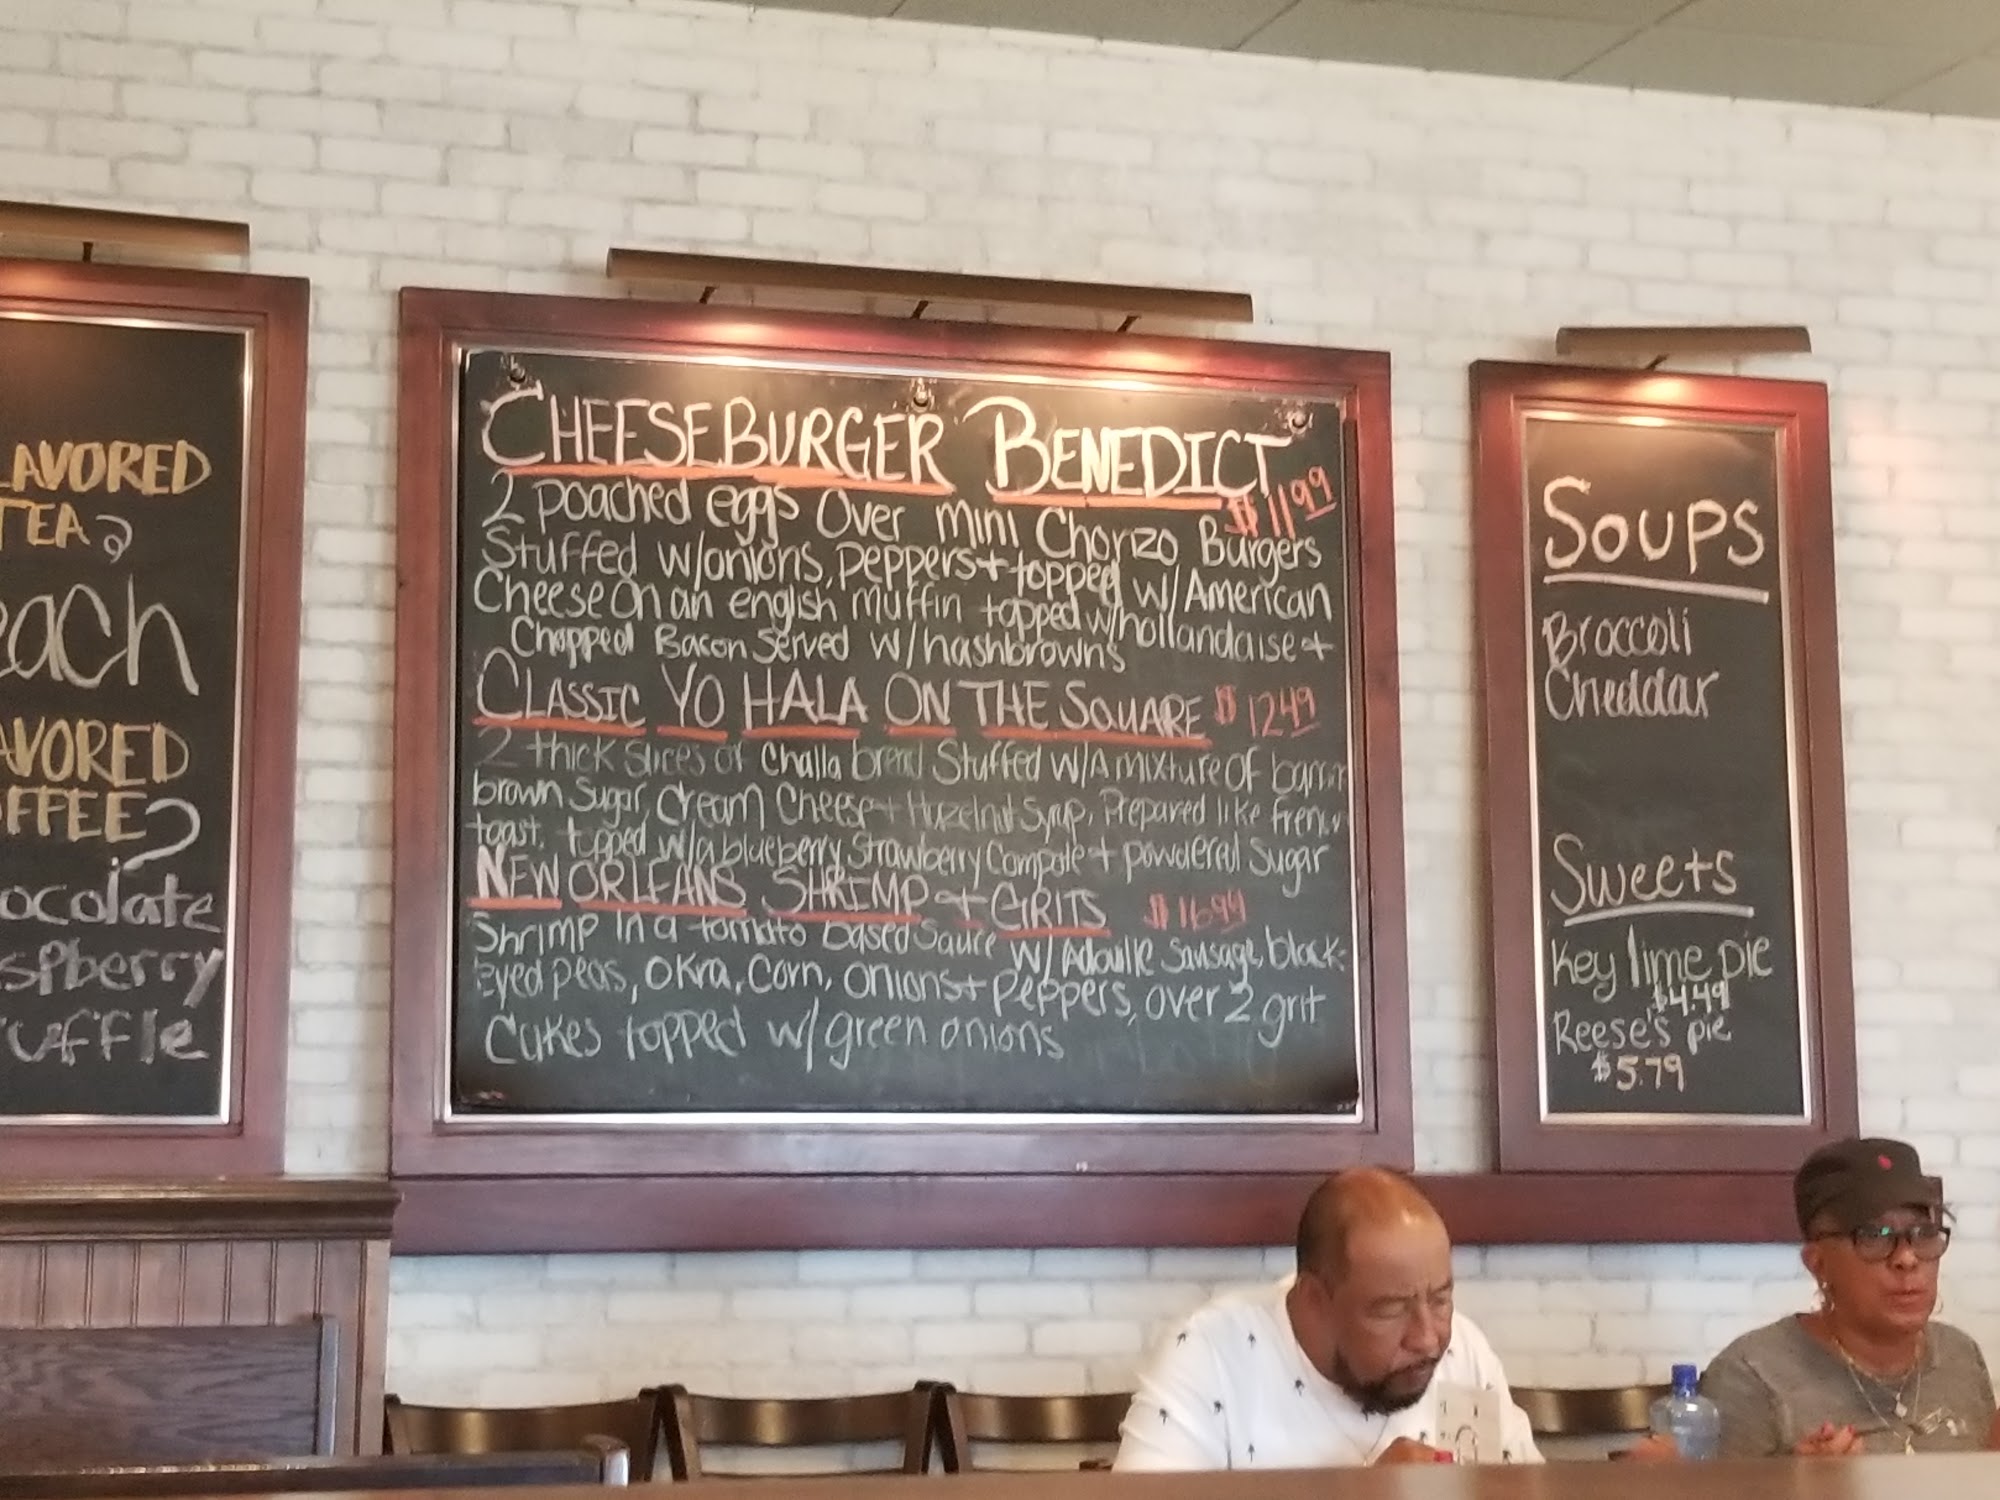 LAVORED
TEA?
each
AVORED
OFFEE?
ocolate
spberry
ruffle
CHEESEBURGER BENEDICT
$11.99
2 poached eggs Over mini Chorizo Burgers
Stuffed w/onions, peppers + topped w/American
Cheese On an english muffin topped w/hollandaise +
Chopped Bacon Served w/hashbrowns
CLASSIC YO HALA ON THE SQUARE $12.49
2 thick slices of Challa bread Stuffed w/A mixture OF banan
brown Sugar, Cream Cheese + Hazelnut Syrup, Prepared like french
toast. topped w/a blueberry, Strawberry Compote + powdered Sugar
NEW ORLEANS SHRIMP + GRITS $16.99
Shrimp In a tomato based Sauce w/Adouille Sausage, black-
Eyed peas, OKra, Corn, Onions + Peppers, over 2 grit
Cakes topped w/green onions
SOUPS
Broccoli
Cheddar
Sweets
Key lime pie
$4.49
Reese's pie
$5.79